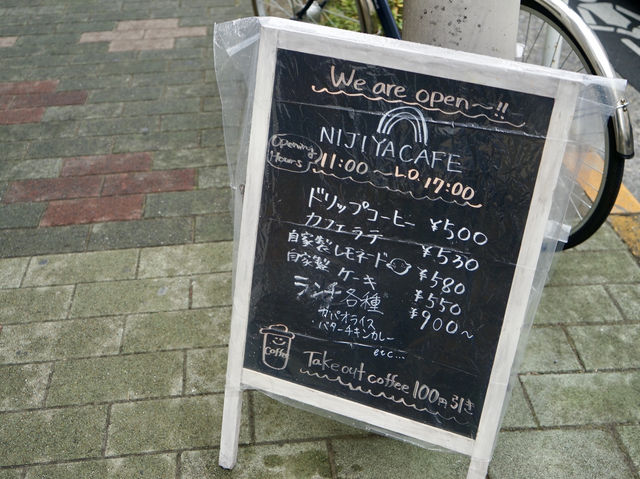 We are open〜!!
NIJIYA CAFE
Opening Hours 11:00 〜 L.O. 17:00
ドリップコーヒー ¥500
カフェラテ ¥530
自家製レモネード ¥580
自家製 ケーキ ¥550
ランチ各種 ¥900〜
ガパオライス
バターチキンカレー
etc...
coffee
Take out coffee 100円引き